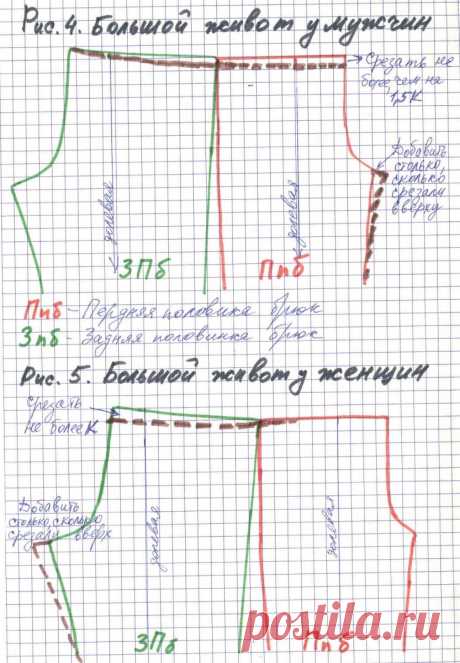 Рис. 4. Большой живот у мужчин
Срезать не
более, чем на
1,5К
Добавить
столько,
сколько
срезали
вверху
долевая
долевая
ЗПб
Ппб
Ппб - Пердняя половика брюк
Зпб - Задняя половинка брюк
Рис. 5. Большой живот у женщин
Срезать
не более К
Добавить
столько, сколько
срезали вверх
долевая
долевая
ЗПб
Ппб
postila.ru